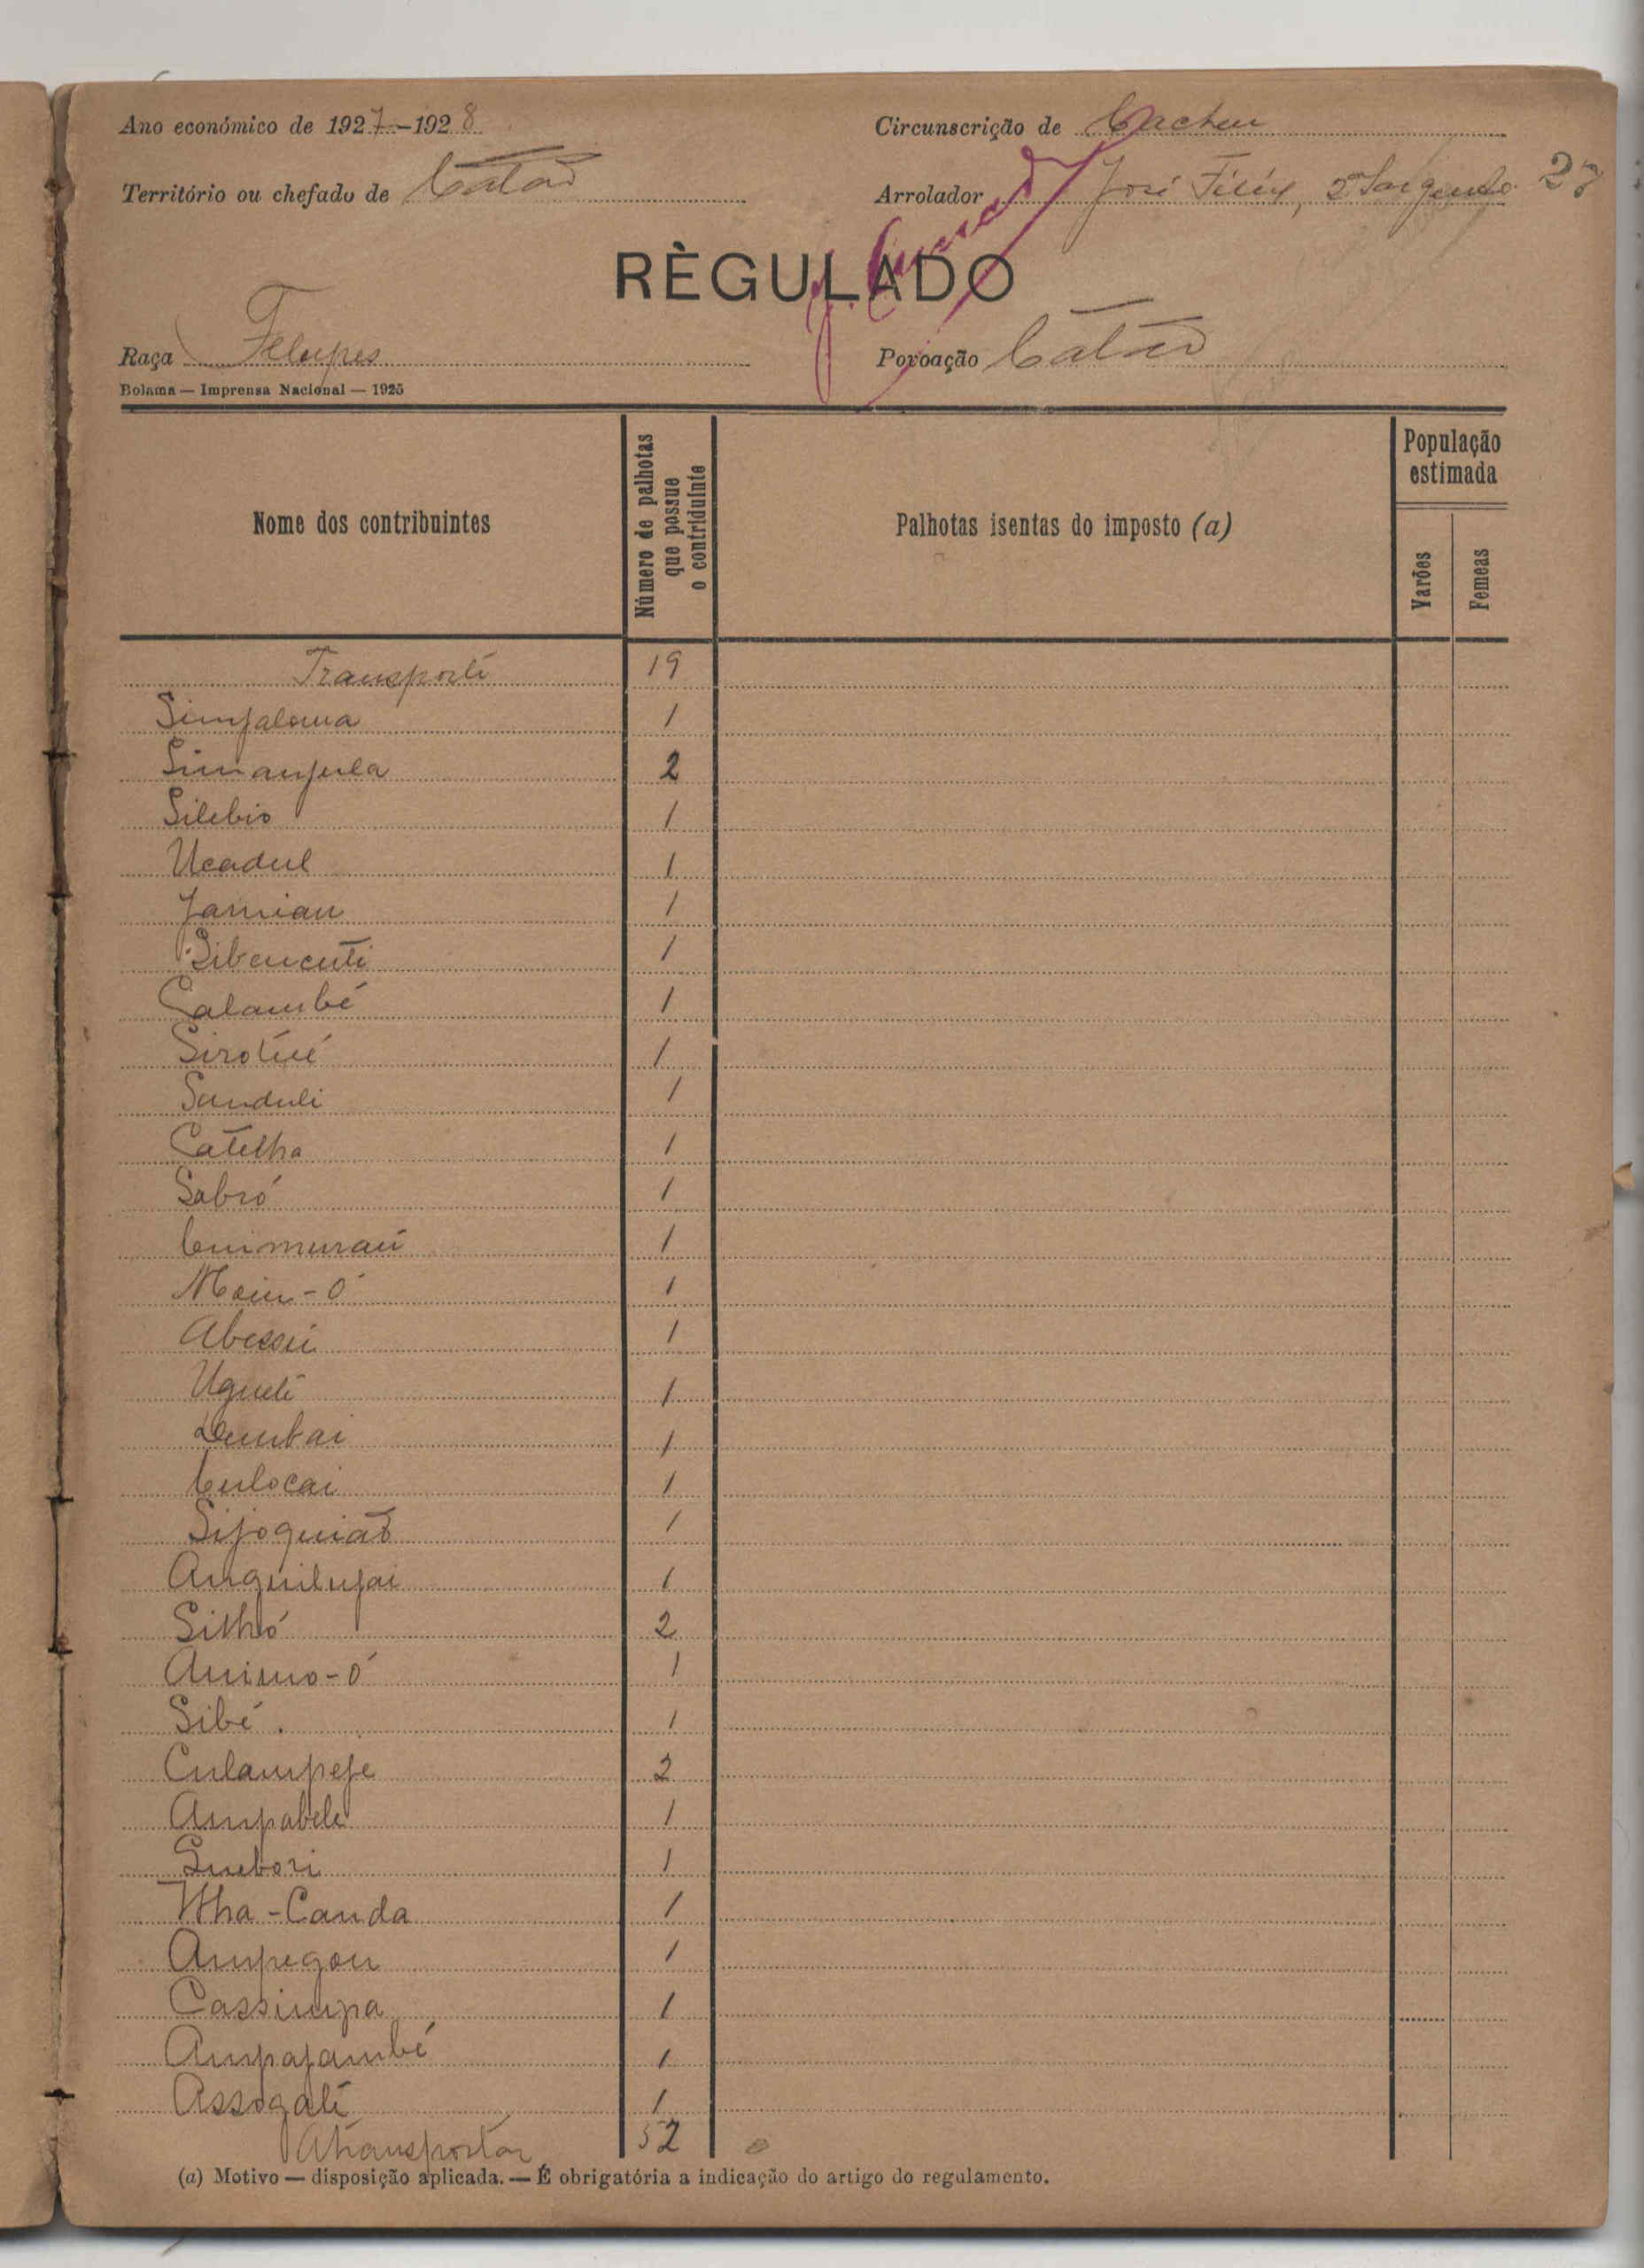 Ano económico de 1927-1928
Circunscrição de Cacheu
Território ou chefado de Catão
Arrolador José Félix, 2º Sargento 27
RÈGULADO
Raça Felupes
Povoação Catão
Bolama — Imprensa Nacional — 1925
Nome dos contribuintes
Número de palhotas que possue o contriduinte
Palhotas isentas do imposto (a)
População estimada
Varões
Femeas
Transporte 19
Simjaloua 1
Simanjula 2
Silebio 1
Ucadul 1
Jamian 1
Sibencuti 1
Calambé 1
Sirotué 1
Sanduli 1
Catelha 1
Sabró 1
Cuimuraú 1
Moin-ó 1
Abessú 1
Ugueli 1
Dembai 1
Culocai 1
Sijoguiaõ 1
Anguilujai 1
Silhó 2
Animo-ó 1
Sibé 1
Culampeje 2
Ampabele 1
Suebori 1
Itha-Canda 1
Ampegou 1
Cassimpa 1
Ampajambé 1
Assogalé 1
A transportar 52
(a) Motivo — disposição aplicada. — É obrigatória a indicação do artigo do regulamento.